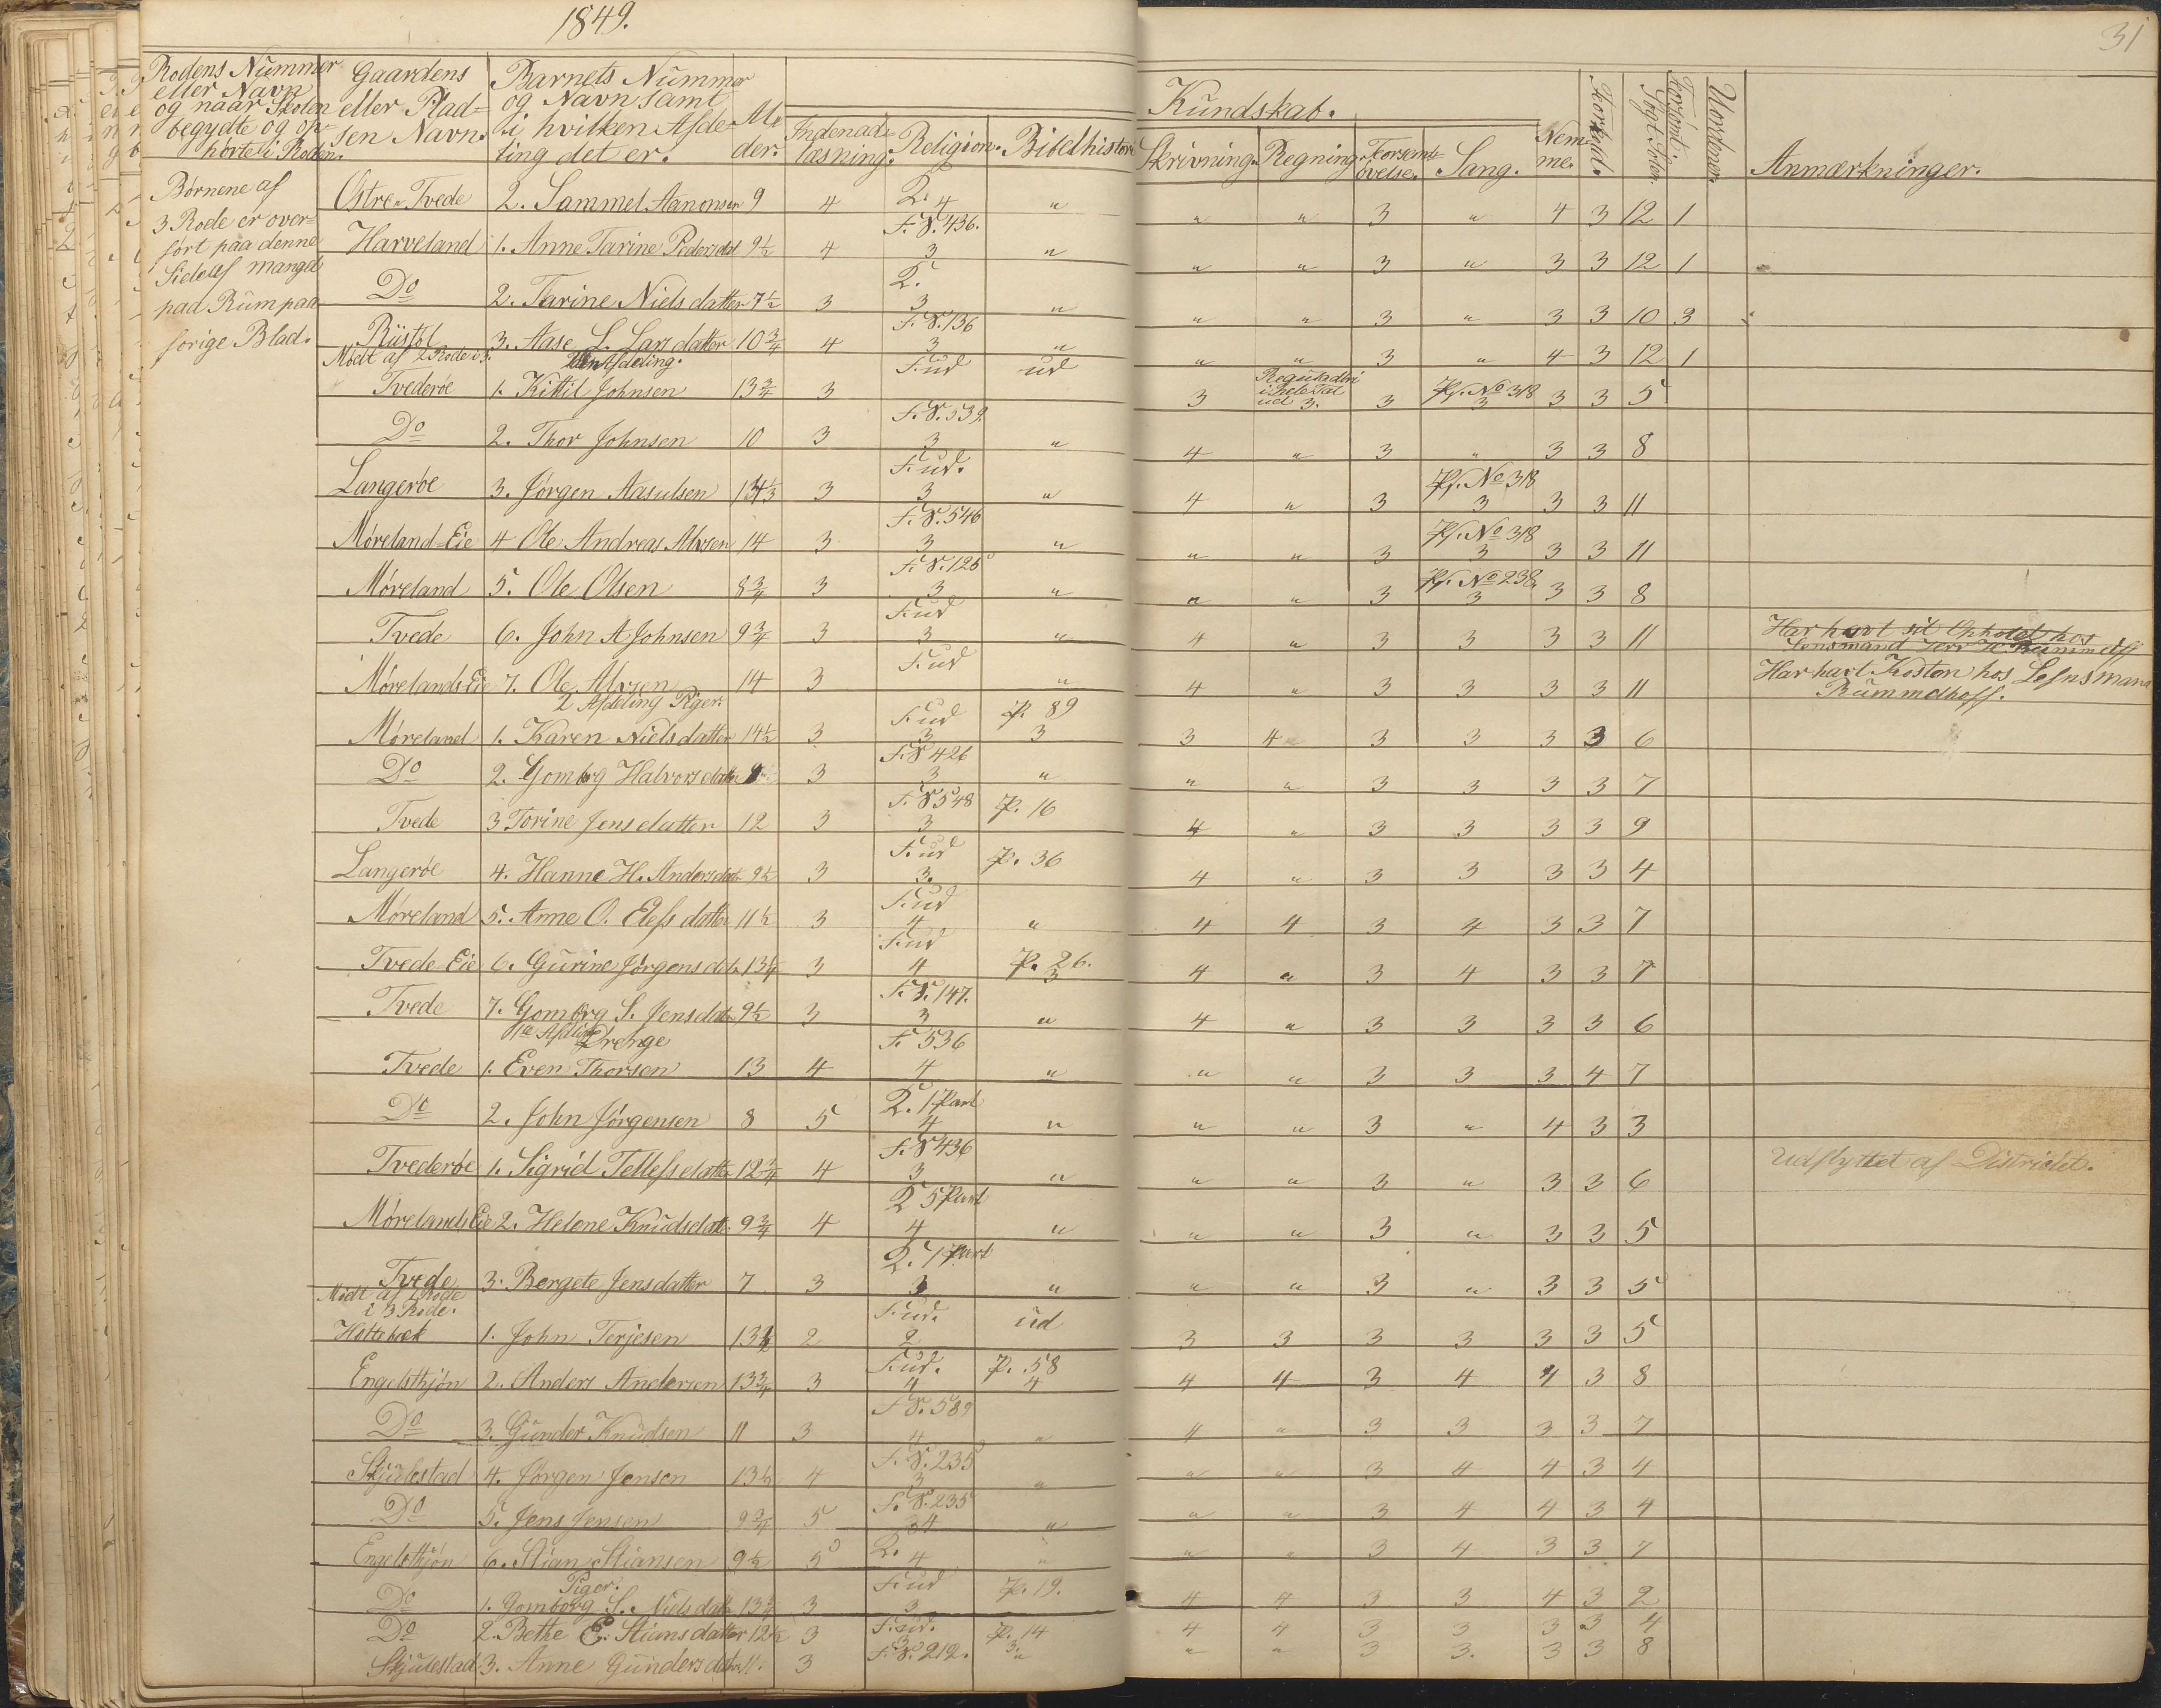 1849.
31
Rodens Nummer eller Navn og naar Skolen begydte og op- hørte i Roden.
Gaardens eller Plad- sen Navn.
Barnets Nummer og Navn samt i hvilken Afde- ling det er.
Al- der.
Kundskab.
Indenad- læsning. Religion. Bibelhistorie Skrivning. Regning. Sang. Nem- me. Forhold. Forsømt. Søgt Skolen. Uordener. Anmærkninger.
Børnene af
3 Rode er over-
ført paa denne
Side af mangel
paa Rum paa
forige Blad.
Østre Tvede 2. Sammel Aanonsen 9 4 Q. 4 " " " 3 " 4 3 12 1
Harveland 1. Anne Tarine Pedersdat 9½ 4 F. S. 436. 3 " " " 3 " 3 3 12 1
Do 2. Tarine Nielsdatter 7½ 3 Q. 3 " " " 3 " 3 3 10 3
3. Aase L. Larsdatter 10¾ 4 F. S. 136 3 " " " 3 " 4 3 12 1
Mødt af 2 Rode i 3. Afdeling.
Tvederøe 1. Kittil Johnsen 13¾ 3 F. ud ud 3 i hele Tal ud 3. 3 Ps. No 318 3 3 3 5
Do 2. Thor Johnsen 10 3 F. S. 539. 3 " 4 " 3 " 3 3 8
Langerøe 3. Jørgen Aasulsen 3 F. ud. 3 " 4 " 3 Ps. No 318 3 3 3 11
Møreland-Eie 4 Ole Andreas Alvsen 14 3 F. S. 546 3 " " " 3 Ps. No 318 3 3 3 11
Møreland 5. Ole Olsen 8¾ 3 F. S. 125 3 " " " 3 Ps. No 238. 3 3 3 8
Tvede 6. John A Johnsen 9¾ 3 F. ud 3 " 4 " 3 3 3 3 11 Har havt sit Ophold hos
Lensmand Herr
Mørelands-Eie 7. Ole Alvsen 14 3 F. ud " 4 " 3 3 3 3 11 Har havt Kosten hos Lensmand
Rummelhoff.
2 Afdeling Piger.
Møreland 1. Karen Nielsdatter 14½ 3 F. ud 3 P. 89 3 3 4 3 3 3 3 6
Do 2. Gomborg Halvorsdatter 3 F. S 426 3 " " " 3 3 3 3 7
Tvede 3 Torine Jensdatter 12 3 F. S 548 3 P. 16 4 " 3 3 3 3 9
Langerøe 4. Hanne H. Andersdatr 9½ 3 F. ud 3. P. 36 4 " 3 3 3 3 4
Møreland 5. Anne O. Elefsdatter 11½ 3 F. ud 4 " 4 4 3 4 3 3 7
Tvede-Eie 6. Gurine Jørgensdatr 13¼ 3 F. ud 4 P. 26. 3 4 " 3 4 3 3 7
Tvede 7. Gomborg S. Jensdatr 9½ 3 F. S. 147. 3 " 4 " 3 3 3 3 6
1te Afdeling Drenge
Tvede 1. Even Thorsen 13 4 F. 536 4 " " " 3 3 3 4 7
Do 2. John Jørgensen 8 5 Q. 1 Part 4 " " " 3 " 4 3 3
Tvederøe 1. Sigrid Tellefsdatter 12¾ 4 F. S 436 3 " " " 3 " 3 3 6 Udflyttet af Districtet.
Mørelands Eie 2. Helene Knudsdatr 9¾ 4 Q 5 Part 4 " " " 3 " 3 3 5
Tvede 3. Bergete Jensdatter 7 3 Q. 1 Part 3 " " " 3 " 3 3 5
Mødt af 1 Rode
i 3 Rode.
Holtebæk 1. John Terjesen 13½ 2 F. ud. 2 ud 3 3 3 3 3 3 5
Engelsthjøn 2. Anders Andersen 13¾ 3 F. ud. 4 P. 58 4 4 4 3 4 4 3 8
Do 3. Gunder Knudsen 11 3 F. S. 589 4 " 4 " 3 3 3 3 7
Skjulestad 4. Jørgen Jensen 13½ 4 F. S. 235 3 " " " 3 4 4 3 4
Do 5. Jens Jensen 9¾ 5 F. S. 235 4 " " " 3 4 4 3 4
Engelsthjøn 6. Stian Stiansen 9½ 5 Q. 4 " " " 3 4 3 3 7
Piger.
Do 1. Gomborg S. Nielsdatr 13¾ 3 F. ud 3 P. 19. 4 4 3 3 4 3 2
Do 2. Bethe E. Stiansdatter 12½ 3 F. ud. 3 P. 14 3. 4 4 3 3 3 3 4
Skjulestad 3. Anne Gundersdatter 11. 3 F. S. 212. " " " 3 3. 3 3 8